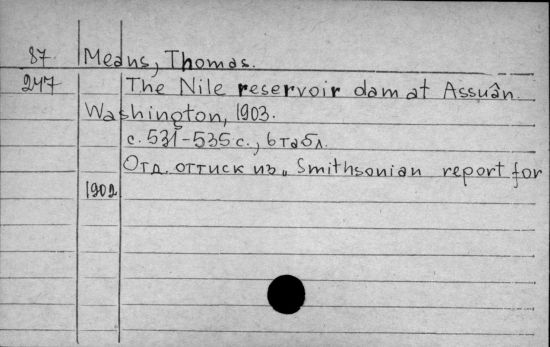 87 Means, Thomas.
247 The Nile reservoir dam at Assuân.
Washington, 1903.
с. 531-535 с., 6 табл.
Отд. оттиск из „Smithsonian report for
1902